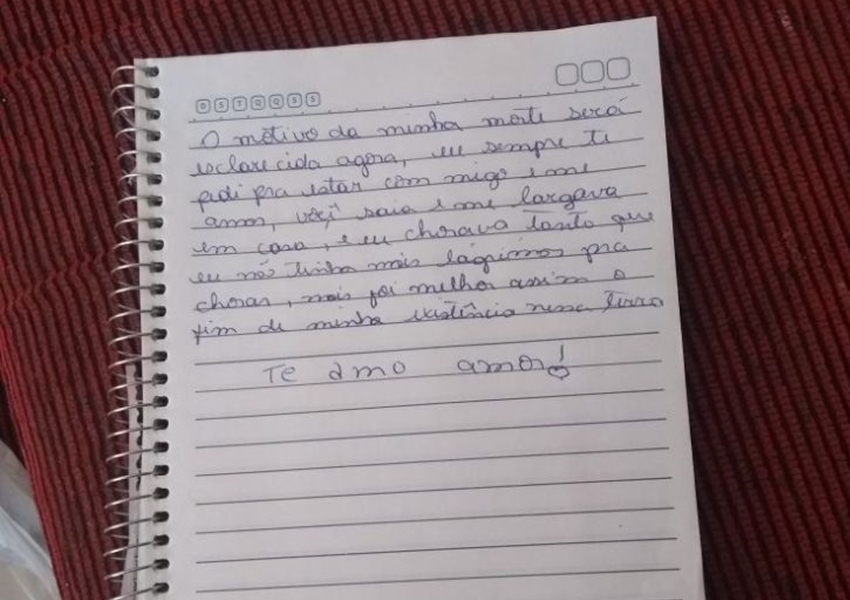 D S T Q Q S S
O motivo da minha morte será
esclarecida agora, eu sempre te
pedi pra estar com migo e me
amar, você saia e me largava
em casa, e eu chorava tanto que
eu não tinha mais lágrimas pra
chorar, mais foi melhor assim o
fim de minha existência nessa terra
Te amo amor!